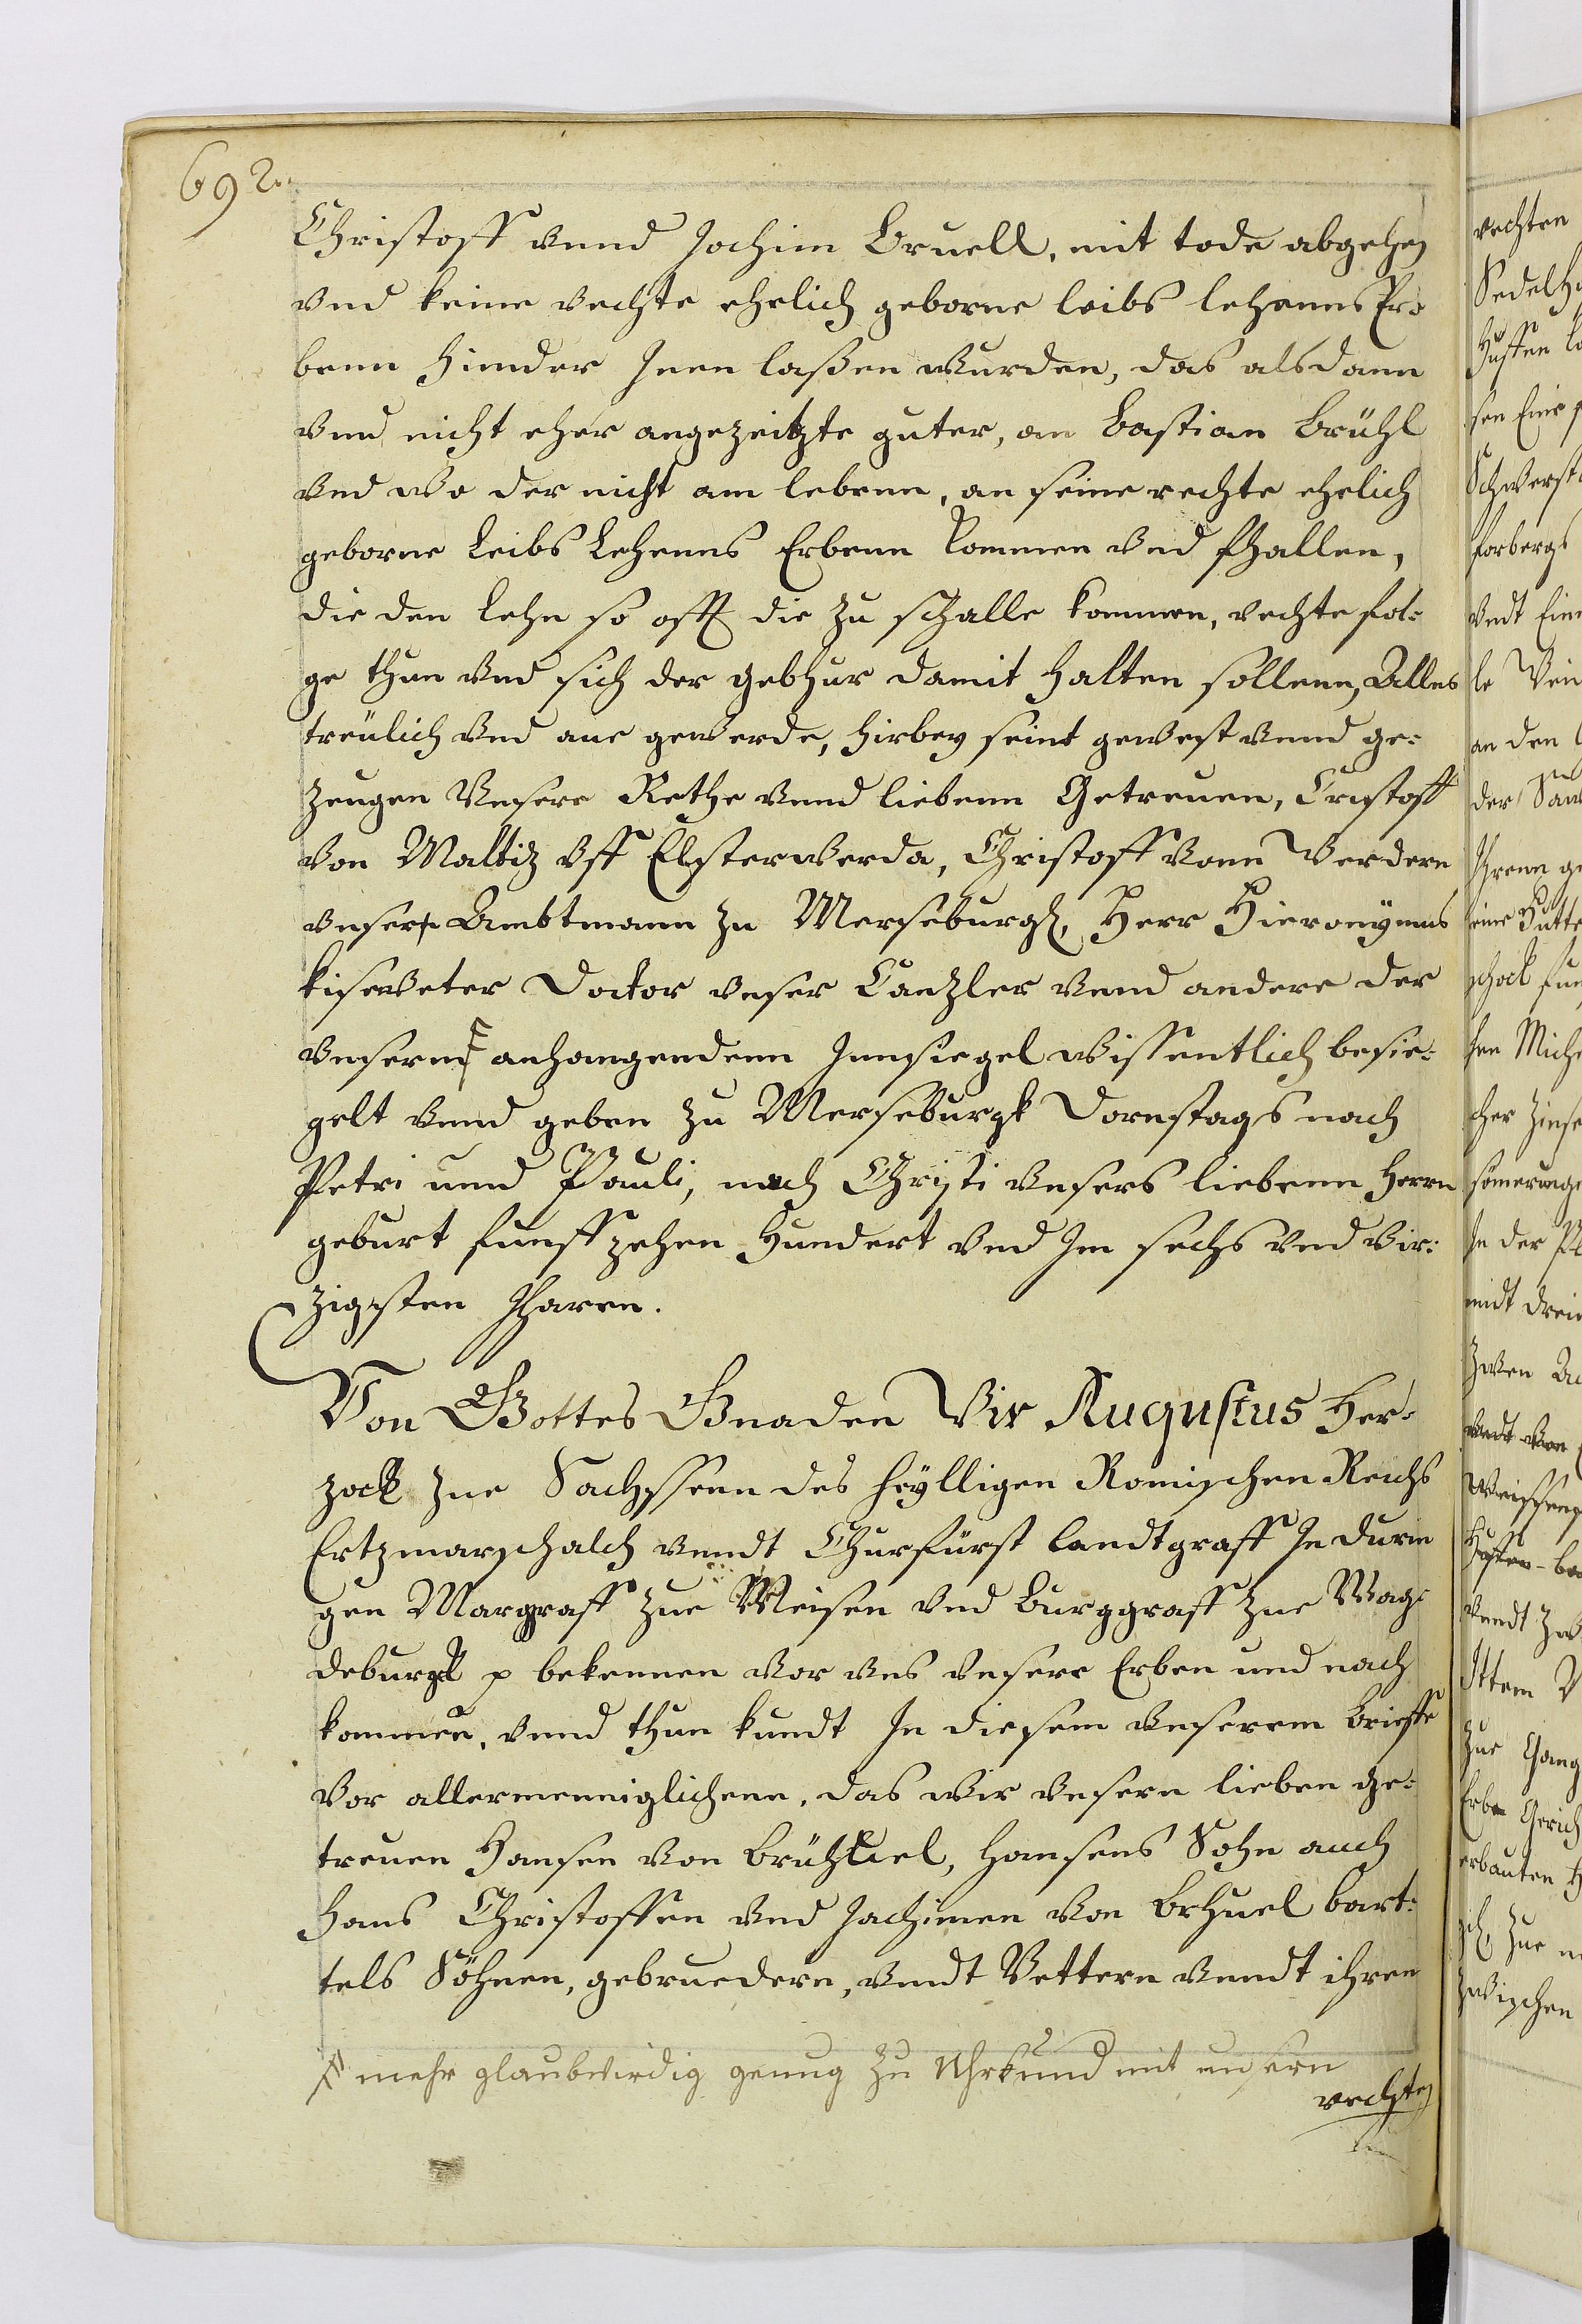 692.
Christoff vnnd Jochim Bruell, mit tode abgehen
vnd keine rechte ehelich geborne leibs lehenns Er=
benn hinder Jnen laßen wurden, das alsdann
vnnd nicht eher angezeitzte guter, an Bastian Brühl
vnd wo der nicht am lebenn, an seine rechte ehelich
geborne Leibs Lehenns Erbenn kommen vnd fhallen,
die den lehn so offt die zu schalle kommen, rechte fol=
ge thun vnd sich der gebhur damit halten sollenn, Alles
treülich vnd ane gewerde, hirbey seint gewest vnnd ge=
zeugen Vnsere Rethe vnnd liebenn Getreuen, Cristoff
von Maltiz vff Elsterwerda, Christoff vonn Werdern
vnser Ambtmann zu Merseburgk, Herr Hieronymus
kiseweter Doctor vnser Canzler vnnd andere der
vnsernn anhangendenn Jnnsiegel wissentlich besie=
gelt vnnd geben zu Merseburgk Dornstags nach
Petri unnd Pauli, nach Christi vnsers liebenn Herrn
geburt funffzehen Hundert vnd Jm sechs vnd vir=
zigsten Jharen.
Von Gottes Gnaden Wir Augustus Her=
zock zue Sachssenn des heylligen Romischen Reichs
Ertzmarschalch vnndt Churfürst landtgraff Jn Durin
gen Margraff zue Meisen vnd Burggraff zue Mag=
deburgk p bekennen vor vns vnsere Erben und nach
kommen, vnnd thun kundt Jn diesem vnserem brieffe
vor allermenniglichenn, das wir vnsern lieben ge=
treuen Hansen von Brühel, Hansens Sohn auch
Hans Christoffen vnd Jachimen von Brhuel bart=
tels Söhnen, gebruedern, vndt Vettern vnndt ihren
mehr glaubwirdig genug zu Uhrkund mit unsern
rechten
rechten
Sedelh
Huffen
sen Eine
Schwerst
forbergs
vndt Ein
le
an den
der
Jhrenn ge
eine Hutte
schock fun
sen Mich
cher zinse
Jn der
midt drei
zwen
vndt von
Weissen
Huffen
vnndt zw
Jttem
zue
Erb Gerich
erbauten
zue
zwischen